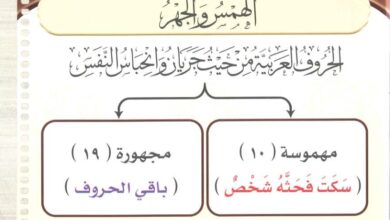 الهَمْسُ وَالجَهْرُ
الحُرُوفُ العَرَبِيَّةُ مِنْ حَيْثُ جَرَيَانُ وَانْحِبَاسُ النَّفَسِ
مهموسة (١٠)
( سَكَتَ فَحَثَّهُ شَخْصٌ )
مجهورة (١٩)
( باقي الحروف )